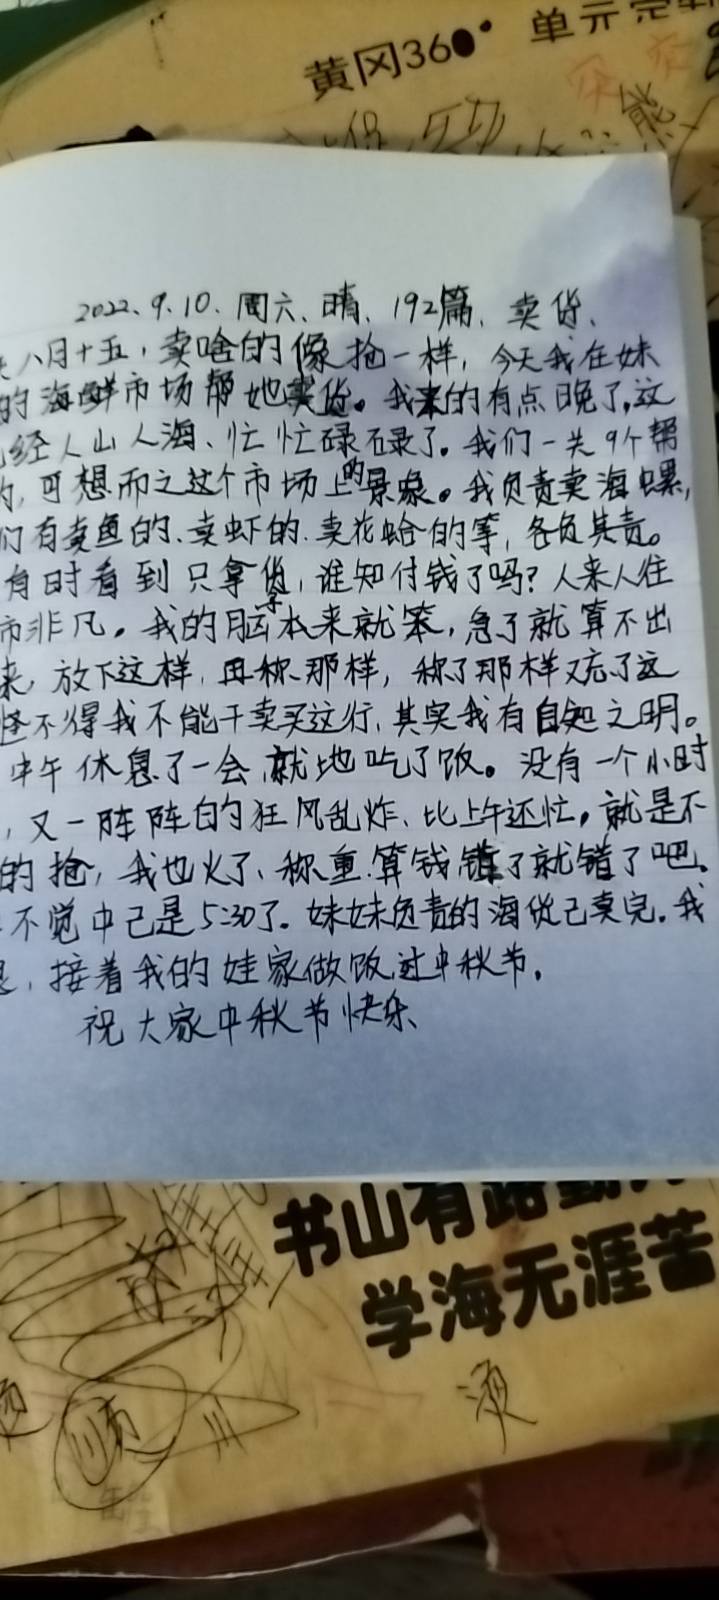 黄冈360° 单元定制
熊
2022.9.10.周六、晴、192篇、卖货、
八月十五，卖啥的像抢一样，今天我在妹
的海鲜市场帮她卖货。我来的有点晚了，这
经人山人海、忙忙碌碌了。我们一共9个帮
，可想而之这个市场上的景象。我负责卖海螺，
们有卖鱼的、卖虾的、卖花蛤的等，各负其责。
有时看到只拿货，谁知付钱了吗？人来人往
市非凡。我的脑子本来就笨，急了就算不出
来，放下这样，再称那样，称了那样又忘了这
怪不得我不能干卖买这行，其实我有自知之明。
中午休息了一会，就地吃了饭。没有一个小时
，又一阵阵的狂风乱炸、比上午还忙。就是不
的抢，我也火了、称重.算钱错了就错了吧。
不觉中已是5:30了。妹妹负责的海货已卖完。我
，接着我的娃家做饭过中秋节，
祝大家中秋节快乐、
书山有路勤
学海无涯苦